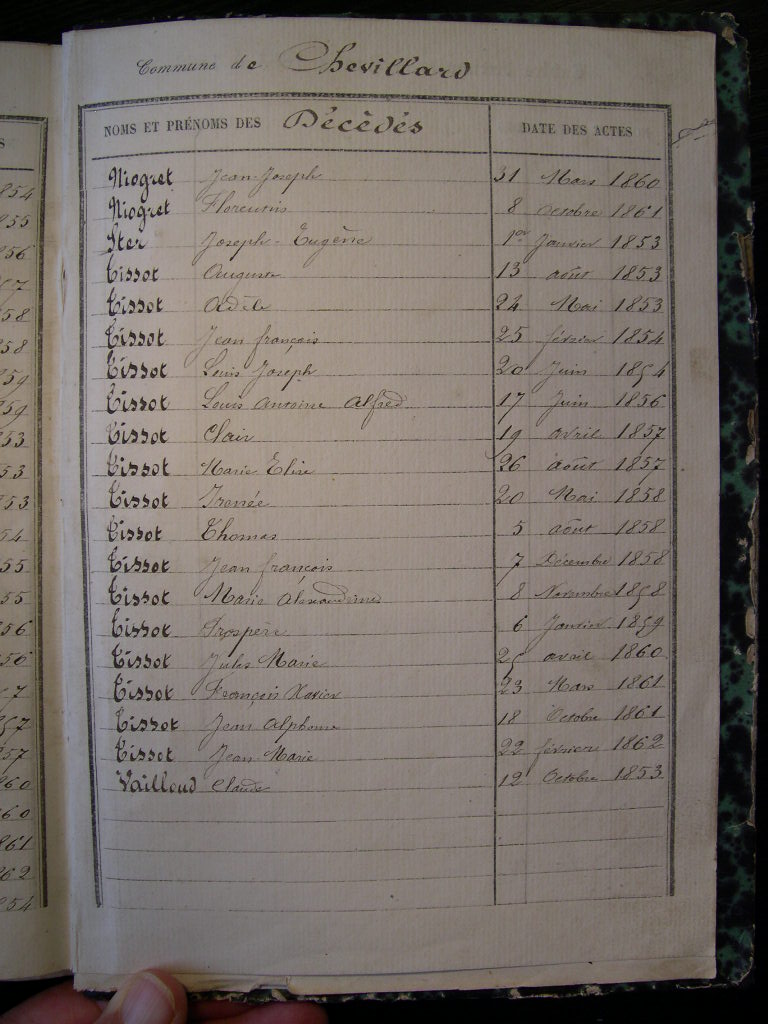 Commune de Chevillard
NOMS ET PRÉNOMS DES Décèdés DATE DES ACTES
Niogret Jean-Joseph 31 Mars 1860
Niogret Florentin 8 Octobre 1861
Ster Joseph-Eugène 1er Janvier 1853
Tissot Auguste 13 août 1853
Tissot Adèle 24 Mai 1853
Tissot Jean françois 25 février 1854
Tissot Louis Joseph 20 Juin 1854
Tissot Louis Antoine Alfred 17 Juin 1856
Tissot Clair 19 avril 1857
Tissot Marie Elise 26 août 1857
Tissot Irénée 20 Mai 1858
Tissot Thomas 5 août 1858
Tissot Jean françois 7 Décembre 1858
Tissot Marie Alexandrine 8 Novembre 1858
Tissot Prospère 6 Janvier 1859
Tissot Jules Marie 25 avril 1860
Tissot François Xavier 23 Mars 1861
Tissot Jean Alphonse 18 Octobre 1861
Tissot Jean Marie 22 février 1862
Vailloud Claude 12 Octobre 1853